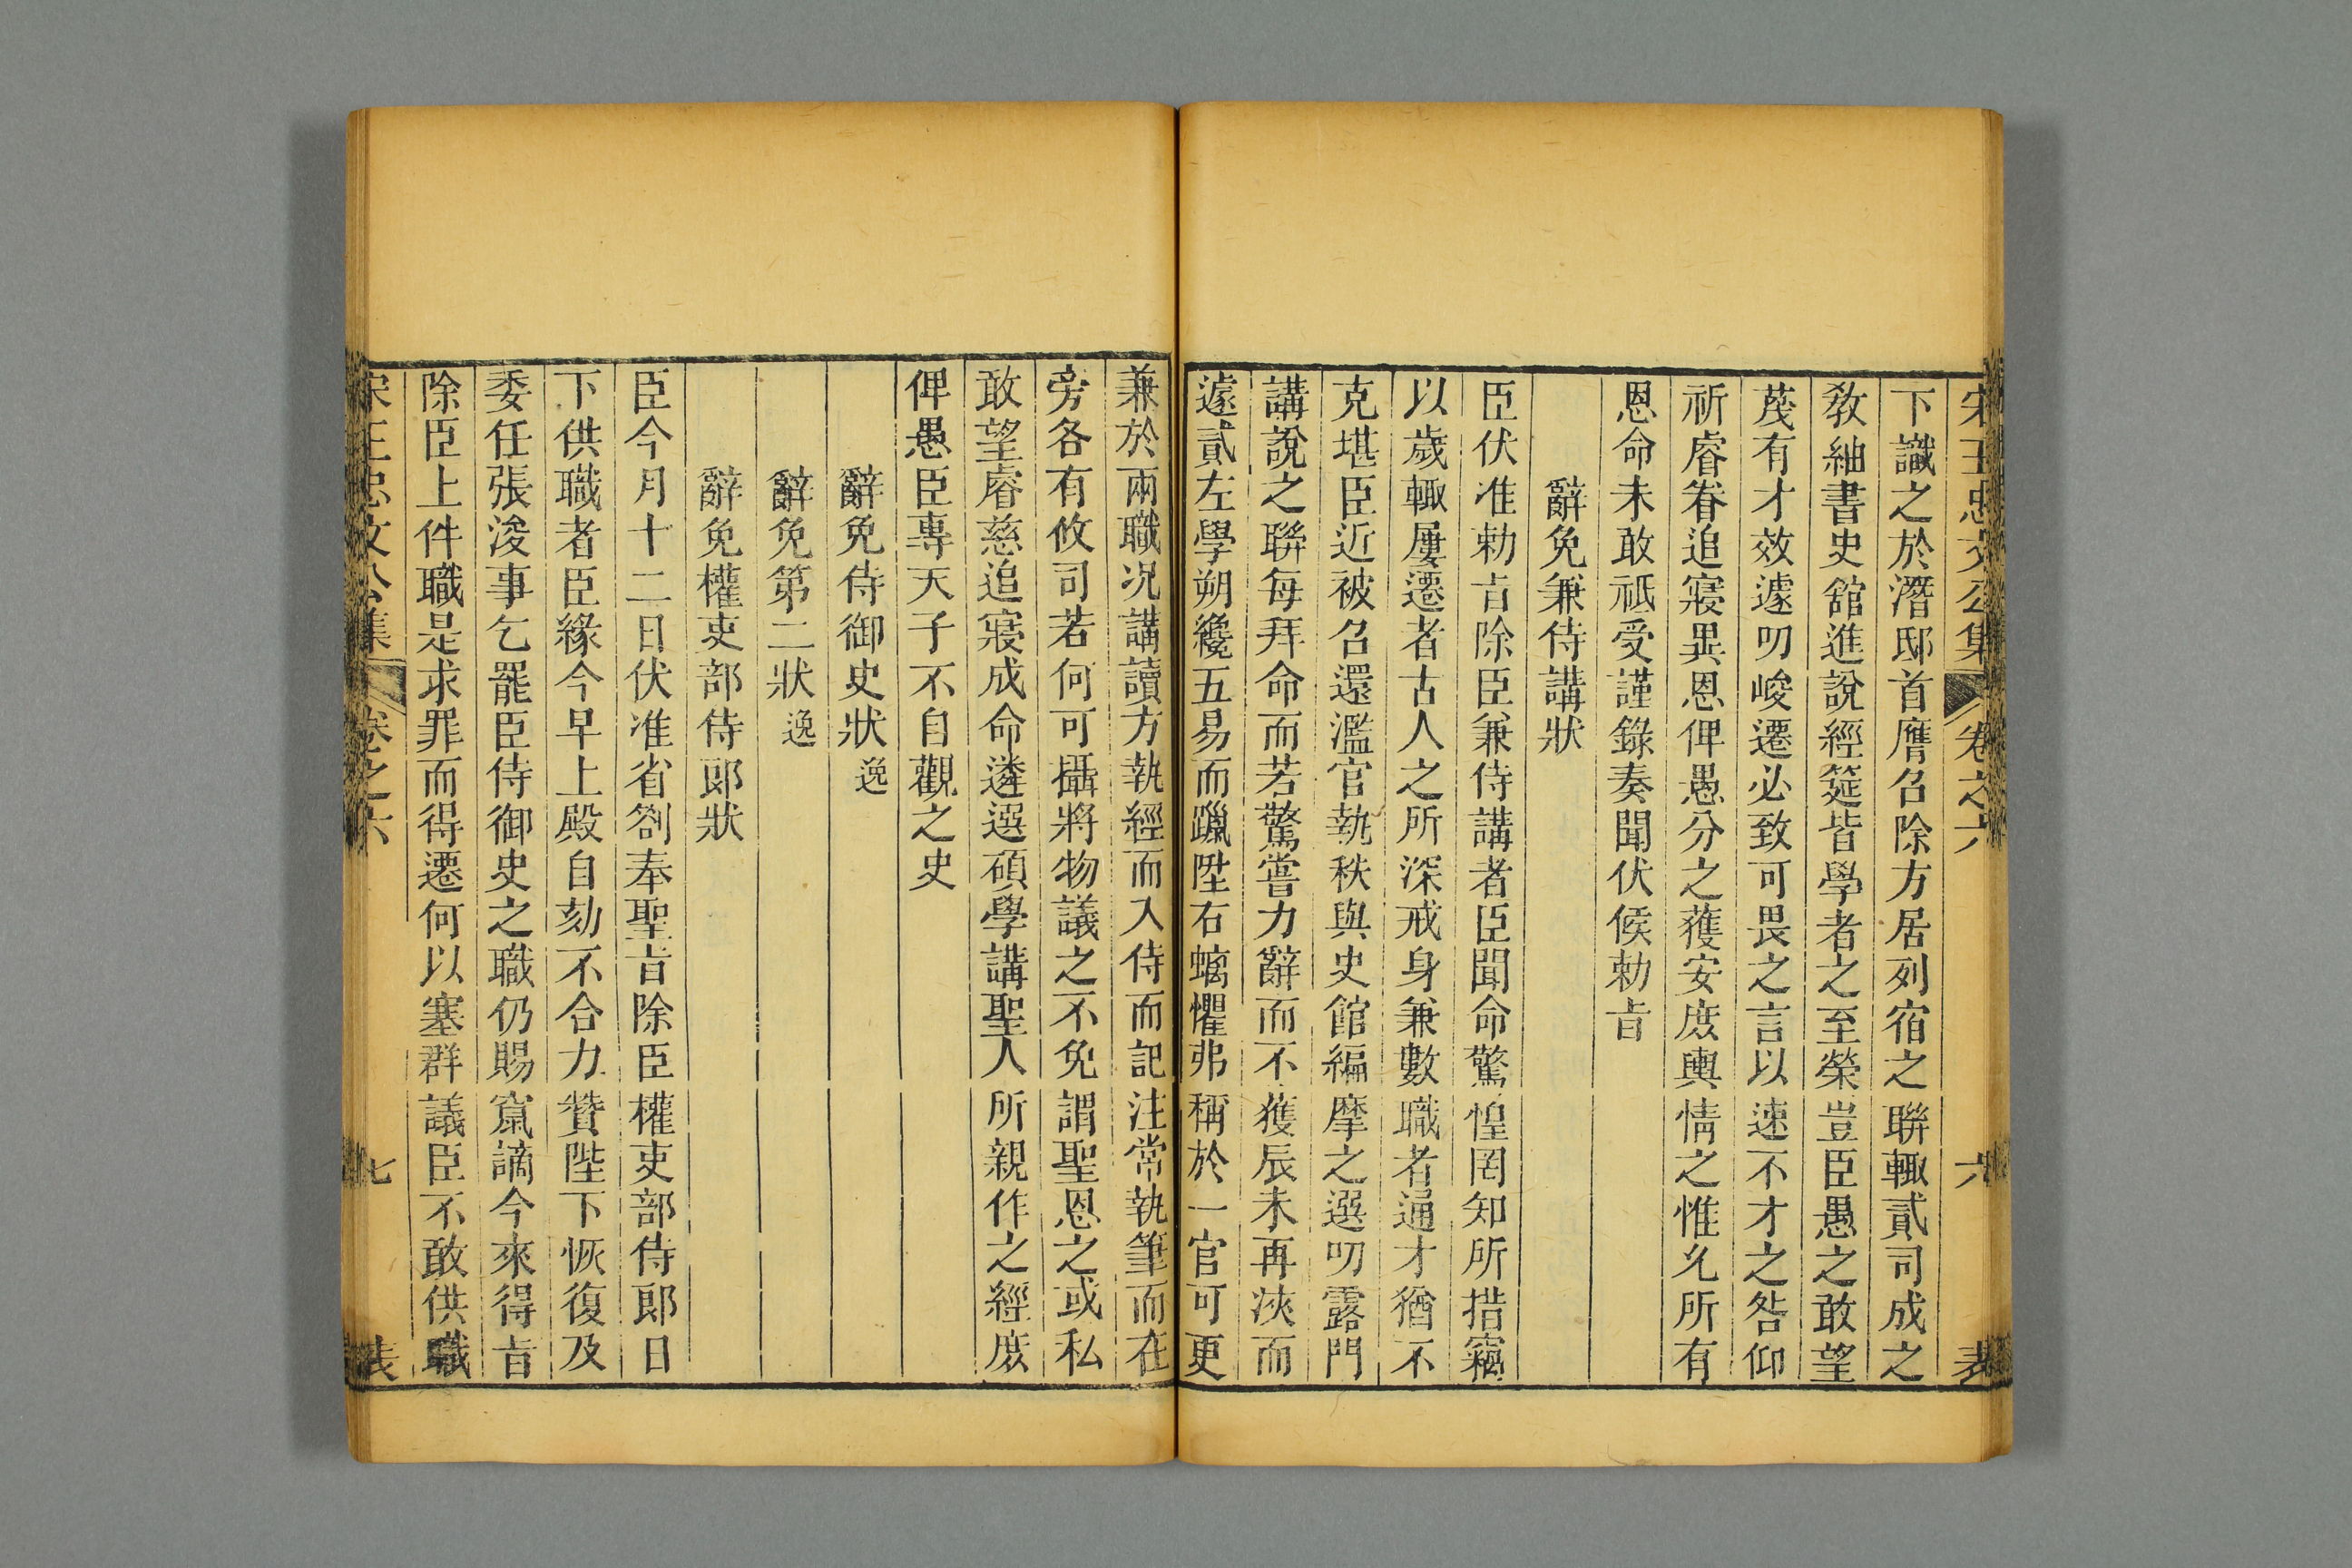 宋王忠文公集 卷之六 六 表
下識之於潛邸首膺名除方居列宿之聯輙貳司成之
教紬書史舘進說經筵皆學者之至榮豈臣愚之敢望
茂有才效遽叨峻遷必致可畏之言以速不才之咎仰
祈睿眷追寢異恩俾愚分之獲安庶輿情之惟允所有
恩命未敢祗受謹錄奏聞伏候勅旨
辭免兼侍講狀
臣伏准勅旨除臣兼侍講者臣聞命驚惶罔知所措竊
以歲輙屢遷者古人之所深戒身兼數職者通才猶不
克堪臣近被召還濫官執秩與史館編摩之選叨露門
講說之聯每拜命而若驚嘗力辭而不獲辰未再浹而
遽貳左學朔纔五易而躐陞右螭懼弗稱於一官可更
兼於兩職况講讀方執經而入侍而記注常執筆而在
旁各有攸司若何可攝將物議之不免謂聖恩之或私
敢望睿慈追寢成命遴選碩學講聖人所親作之經庶
俾愚臣專天子不自觀之史
辭免侍御史狀 逸
辭免第二狀 逸
辭免權吏部侍郞狀
臣今月十二日伏准省劄奉聖旨除臣權吏部侍郞日
下供職者臣緣今早上殿自劾不合力贊陛下恢復及
委任張浚事乞罷臣侍御史之職仍賜竄謫今來得旨
除臣上件職是求罪而得遷何以塞群議臣不敢供職
宋王忠文公集 卷之六 七 表